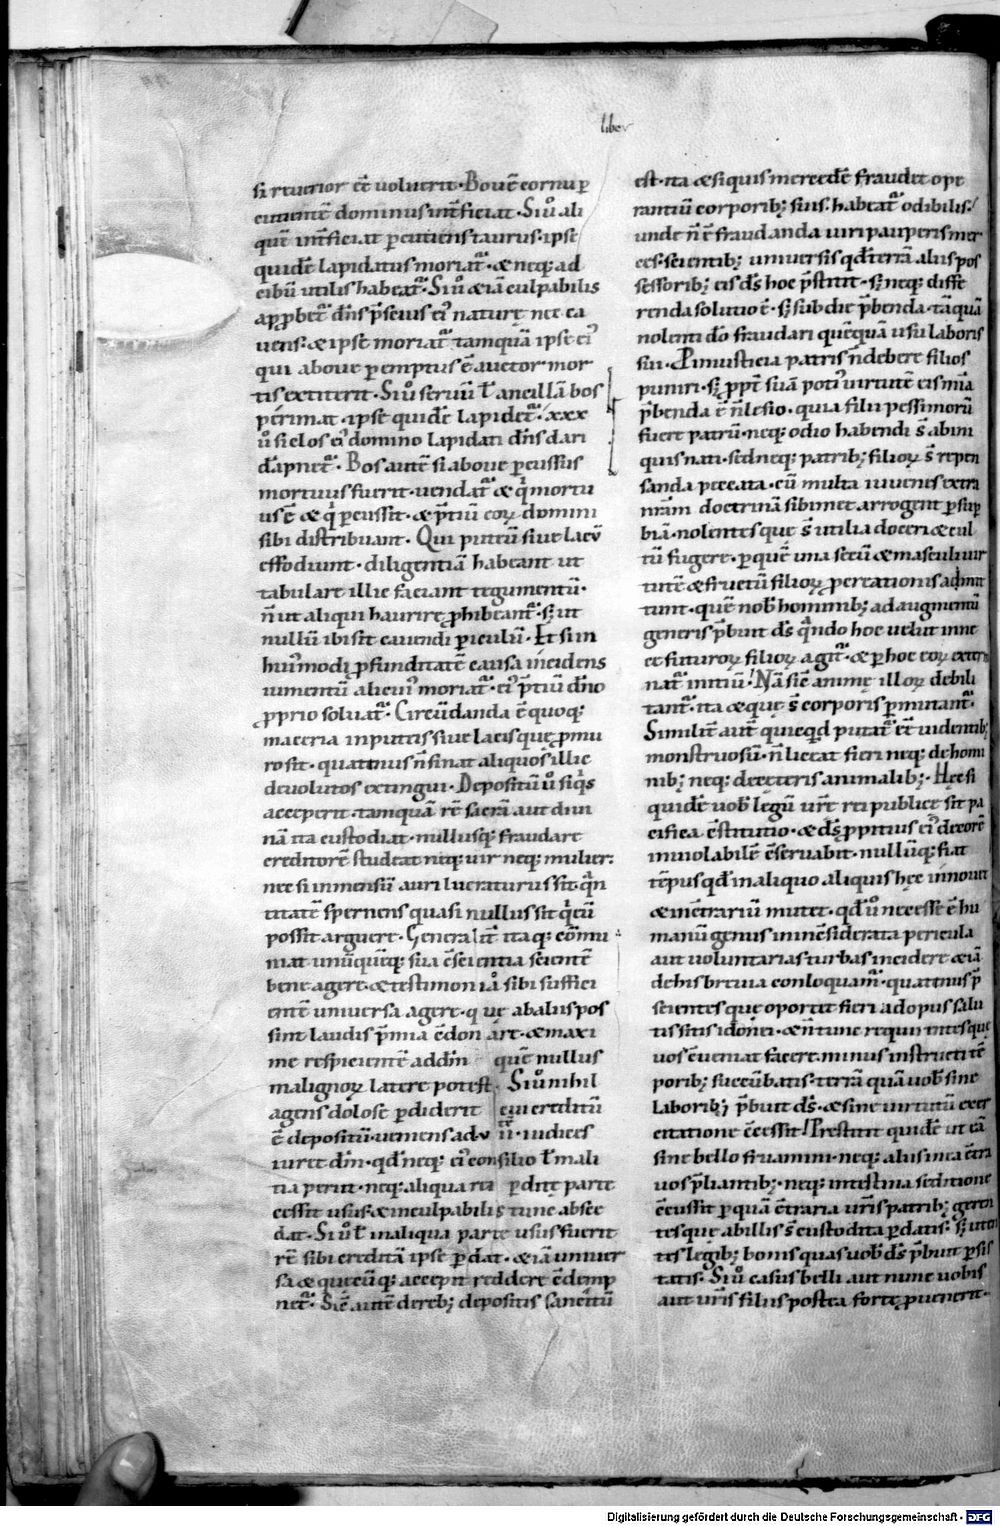 liber
si rtuerior eē uoluerit · Bouē cornu ꝑ
cutientē dominus int̄ficiat · Siu̅ ali
quē int̄ficiat ꝑcutiens taurus · ipse
quidē lapidatus moriat᷑ · & neq; ad
cibū utilis habeat᷑ · Siu̅ & iā culpabilis
aꝓbet᷑ dn̄s p̄scius ei᷒ naturę nec ca
uens · & ipse moriat᷑ tamquā ipse ei᷒
qui aboue ꝑemptus ē auctor mor
tis extiterit · Siu̅ seruū ł ancillā bos
perimat · ipse quidē lapidet᷑ · xxx
u̅ siclos ei᷒ domino lapidati dn̄s dari
dāpnet᷑ · Bos autē si aboue ꝑcussus
mortuus fuerit · uendat᷑ & qͥ mortu
us ē & qͥ ꝑcussit · & p̄tiū eoꝝ domini
sibi distribuant · Qui puteū siue lacū
effodiunt · diligentiā habeant ut
tabulare illic faciant tegumentū ·
n̄ ut aliqui haurire ꝓhibeant᷑ · s; ut
nullū ibi sit cauendi ꝑiculū · Et si in
hui᷒modi ꝓfunditatē causa incidens
iumentū alicui᷒ moriat᷑ · ei᷒ p̄tiū dn̄o
ꝓprio soluat᷑ · Circūdanda ē quoq;
maceria in puteis siue lacis quę ꝓmu
ro sit · quatenus n̄ sinat aliquos illic
deuolutos extingui · Depositū u̅ siqͥs
acceperit · tamquā rē sacrā aut diui
nā ita custodiat · nullusq; fraudare
creditorē studeat neq; uir neq; mulier ·
nec si inmensū auri lucraturus sit · qͣn
titatē spernens quasi nullus sit qͥ eū
possit arguere · Generalit̄ itaq; cōmu
niat unūquēq; sua c̄scientia scientē
bene agere · & testimoniā sibi suffici
entē uniuersa agere · quę abaliis pos
sint laudis p̄mia c̄donare · & maxi
me respicientē addm̄ quē nullus
malignoꝝ latere potest · Siu̅ nihil
agens dolose ꝑdiderit cui creditū
ē depositū · ueniens ad · v · ii · iudices
iuret dm̄ · qd̄ neq; ei᷒ consilio ł mali
tia perit · neq; aliqua rei ꝑdite parte
cesserit usus · & inculpabilis tunc absce
dat · Siu̅ ł in aliqua parte usus fuerit
rē sibi creditā ipse ꝑdat · & iā uniuer
sa & quecūq; accepit reddere c̄demp
net᷑ · Sic̄ autē de reb; depositis sancitū
est · ita & siquis mercedē fraudet ope
rantiū corporib; suis · habeat᷑ odibilis ·
unde n̄ ē fraudanda uiri pauperis mer
ces · scientib; uniuersis qd̄ terrā aliis pos
sessorib; eis ds̄ hoc p̄stitit · s; neq; diffe
renda solutio ē · s; sub die p̄benda · tāquā
nolenti dō fraudari quēquā usu laboris
sui · P iniusticia patris n̄ debere filios
puniri · s; ꝓpt̄ suā poti᷒ uirtutē eis mīa
p̄benda ē n̄ lesio · quia filii pessimorū
fuere patrū · neq; odio habendi s̄ abini
quis nati · sed neq; patrib; filioꝝ s̄ repen
sanda peccata · cū multa iuuenes extra
nr̄am doctrinā sibimet arrogent ꝑsup
biā · nolentesquę s̄ utilia doceri & cul
tū fugere · ꝑquē una secū & masculi uir
tutē & fructū filioꝝ ꝓcreationis admit
tunt · quē nob̄ hominib; ad augmentū
generis p̄buit ds̄ qͣndo hoc uelut inne
ce futuroꝝ filioꝝ agit᷑ · & ꝑ hoc eoꝝ exter
nat᷑ initiū · Nā sic̄ animę illoꝝ debili
tant᷑ · ita & quę s̄ corporis ꝑmutant᷑ ·
Similit̄ aut̄ quicqͥd putat᷑ eē uidentib;
monstruosū · n̄ liceat fieri neq; de homi
nib; neq; de cęteris animalib; · Hęc si
quidē uob̄ legū ur̄e rei publicę sit pa
cifica c̄stitutio · & ds̄ ꝓpitius ei᷒ decorē
inuiolabilē c̄seruabit · nullūq; fiat
tēpus qd̄ in aliquo aliquis hęc innouet
& inc̄trariū mutet · qd̄ u̅ necesse ē hu
manū genus in inc̄siderata pericula
aut uoluntarias turbas incidere & iā
de his breuia conloquam᷑ · quatenus p̄
scientes que oportet fieri ad opus salu
tis sitis idonei · & n̄ tunc requirentes quę
uos c̄ueniat facere · minus instructi tē
porib; succūbatis · terrā quā uob̄ sine
laborib; p̄buit ds̄ · & sine uirtutū exer
citatione c̄cessit · Prestitit quidē ut eā
sine bello fruamini · neq; aliis in ea c̄tra
uos p̄liantib; · neq; intestina seditione
c̄cussit ꝑquā c̄traria ur̄is patrib; geren
tes quę abillis s̄ custodita ꝑdatis · s; uten
tes legib; bonis quas uob̄ ds̄ p̄buit ꝑsis
tatis · Siu̅ casus belli aut nunc uobis
aut ur̄is filiis postea forte ꝓuenerit ·
Digitalisierung gefördert durch die Deutsche Forschungsgemeinschaft - DFG